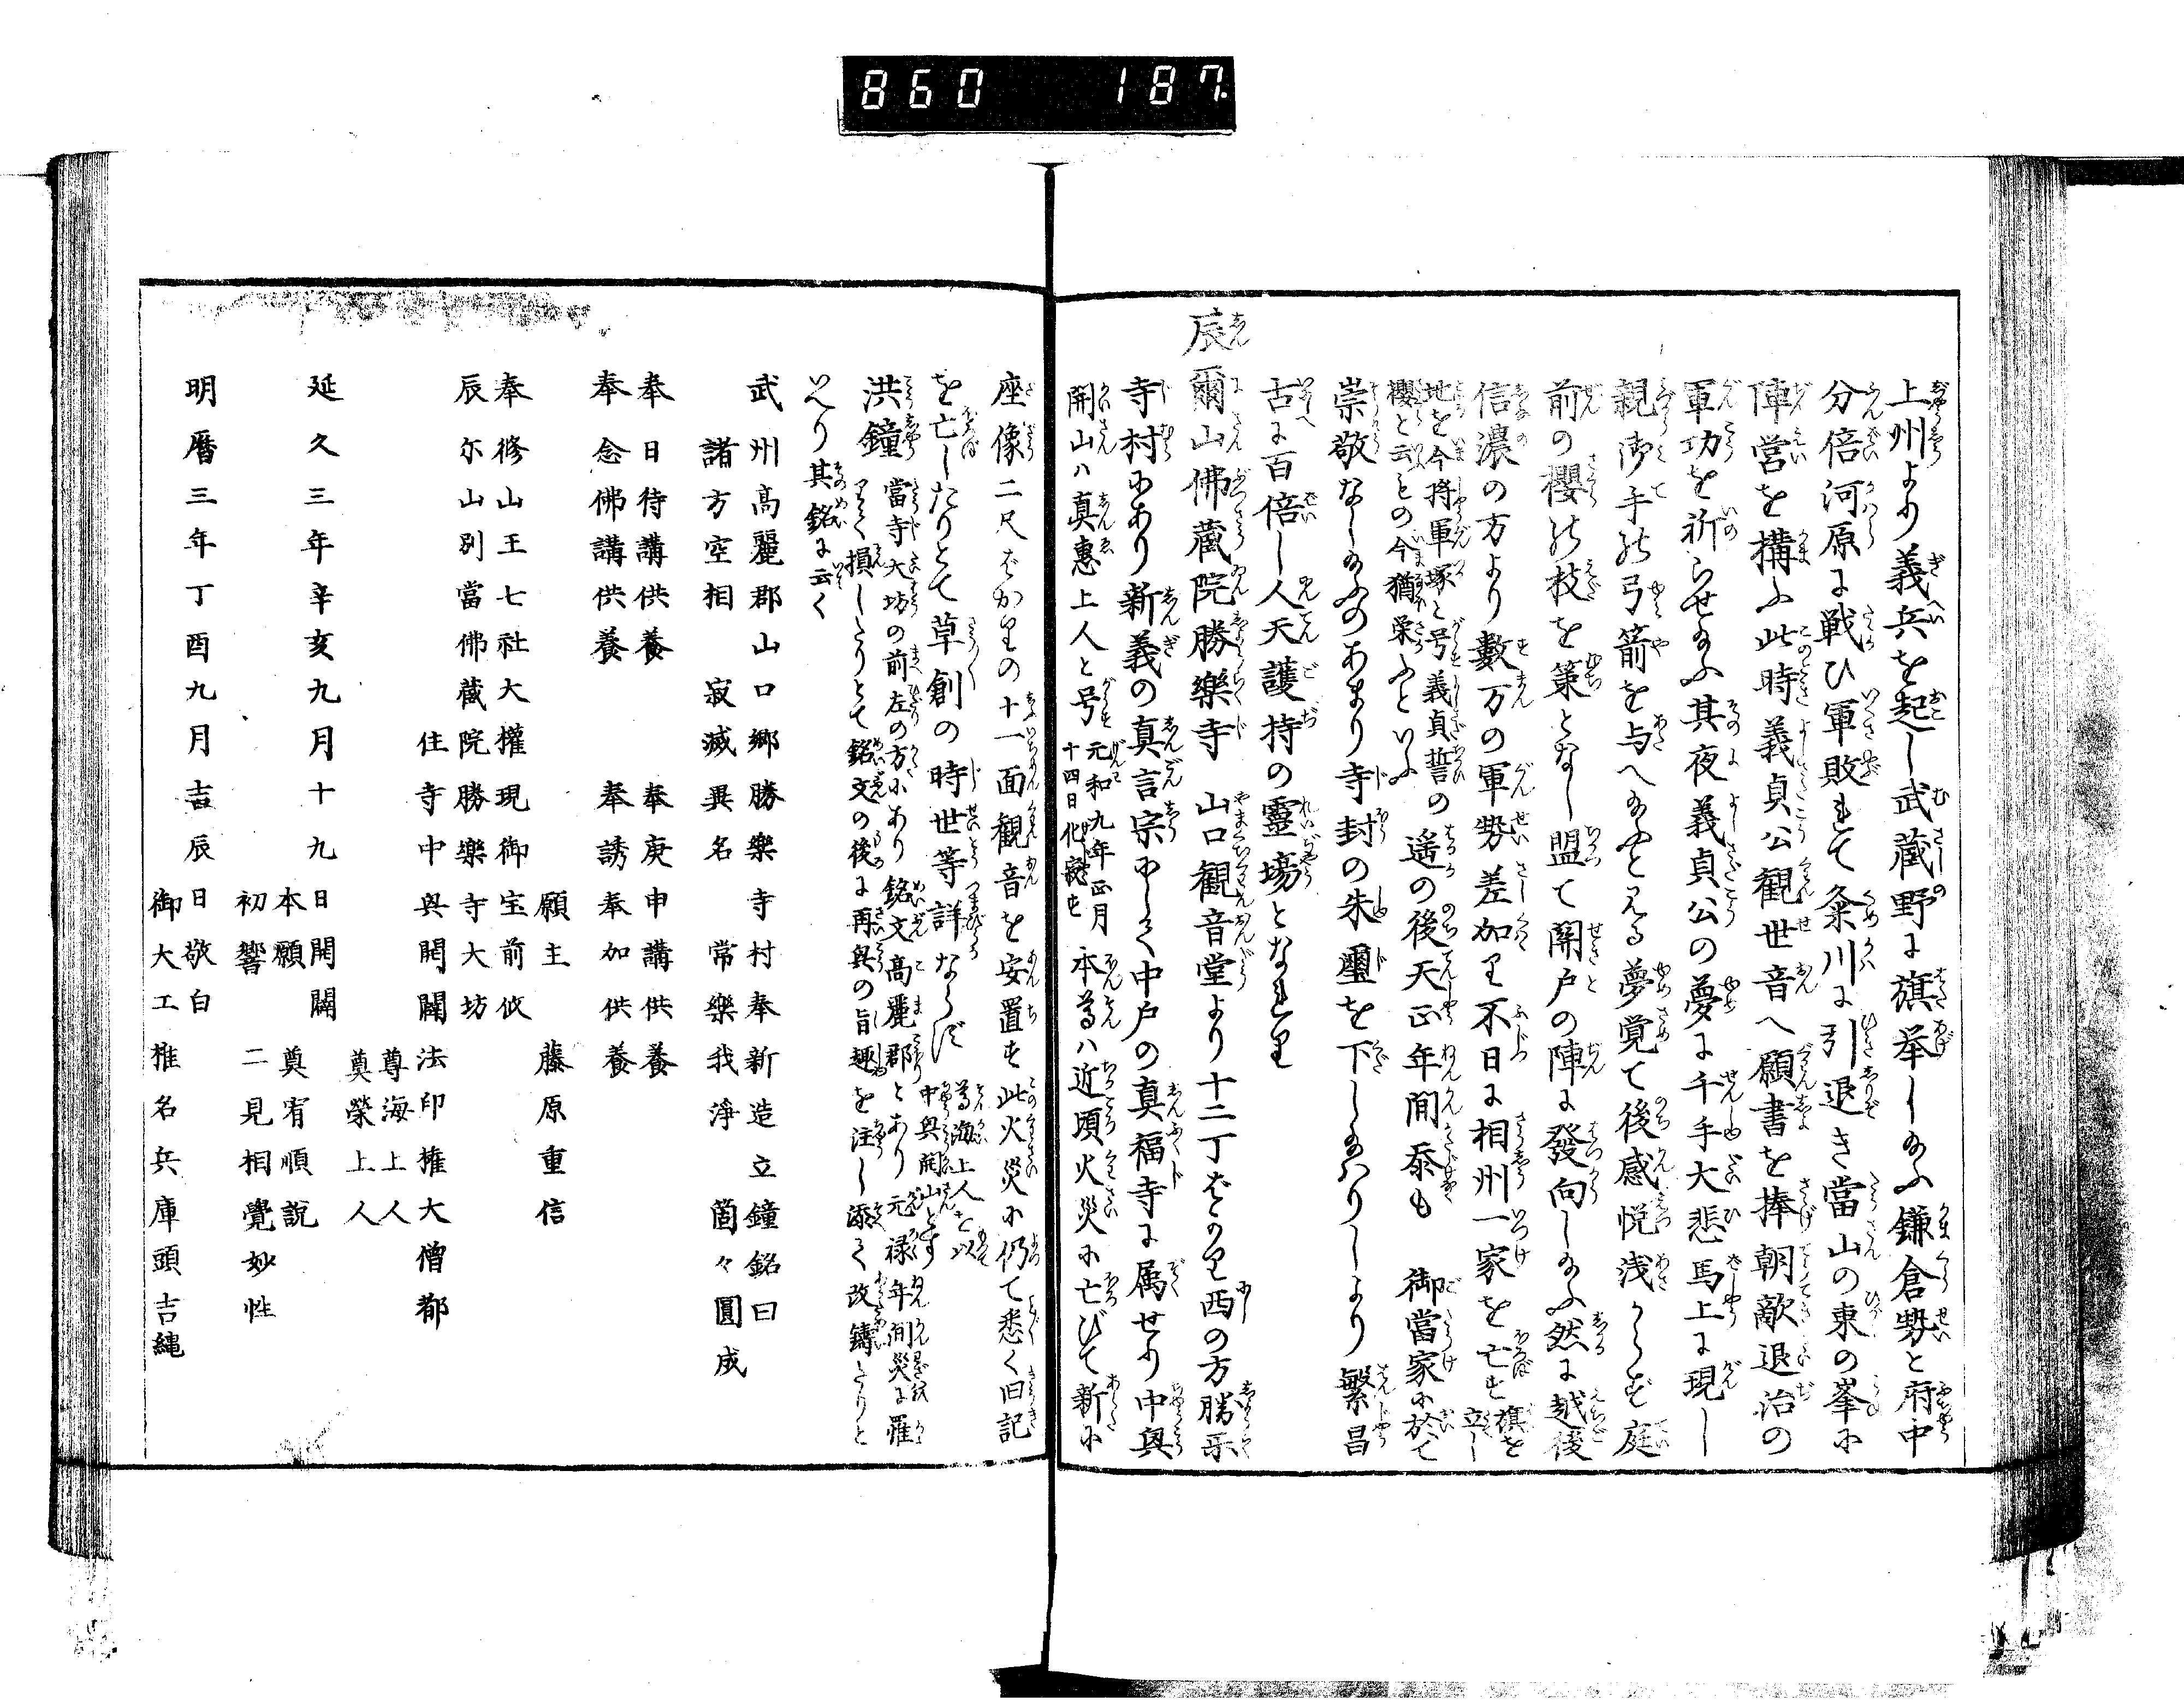 860 187.
上州より義兵を起し武蔵野に旗挙し給ふ鎌倉勢と府中
分倍河原に戦ひ軍敗れて粂川に引退き當山の東の峯に
陣営を構ふ此時義貞公観世音へ願書を捧朝敵退治の
軍功を祈らせ給ふ其夜義貞公の夢に千手大悲馬上に現し
親御手の弓箭を与へ給ふと見る夢覚て後感悦浅からず庭
前の櫻の枝を策となし盟て關戸の陣に發向し給ふ然に越後
信濃の方より數万の軍勢差加り不日に相州一家を亡す旗を立し
地を今将軍塚と号義貞誓の
櫻と云もの今猶栄ふといふ
遙の後天正年間忝も 御當家に於て
崇敬なし給ふのあまり寺封の朱璽を下し給はりしより繁昌
古に百倍し人天護持の靈場となれり
辰爾山佛蔵院勝樂寺 山口観音堂より十二丁ばかり西の方勝示
寺村にあり新義の真言宗にして中戸の真福寺に属せり中興
開山ハ真惠上人と号 元和九年正月
十四日化寂す 本尊ハ近頃火災に亡びて新に
座像二尺ばかりの十一面観音を安置す此火災に仍て悉く旧記
を亡したりとて草創の時世等詳ならず 尊海上人を以
中興開山とす
洪鐘 當寺大坊の前左の方にあり銘文高麗郡とあり元禄年間災に罹
りて損したりとて銘文の後に再興の旨趣を注し添て改鋳たりと
いへり其銘に云く
武州高麗郡山口郷勝樂寺村奉新造立鐘銘曰
諸方空相 寂滅異名 常樂我淨 箇々圓成
奉日待講供養 奉庚申講供養
奉念佛講供養 奉誘奉加供養
願主 藤原重信
奉修山王七社大權現御宝前攸
辰尓山別當佛蔵院勝樂寺大坊
住寺中興開闢 法印權大僧都
尊海上人
奠榮上人
延久三年辛亥九月十九日開闢
本願 奠宥順説
初響 二見相覺妙性
明暦三年丁酉九月吉辰日敬白
御大工 推名兵庫頭吉縄